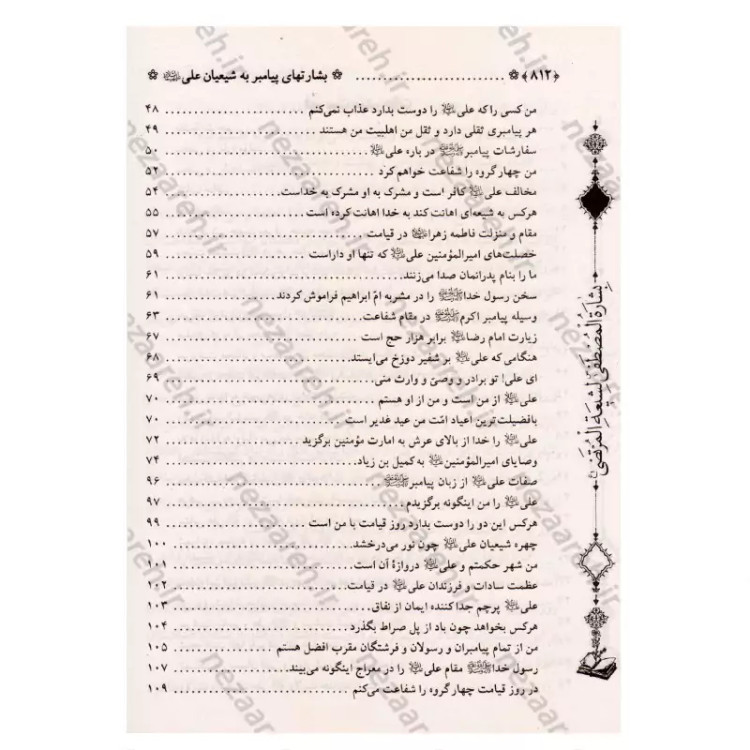 ﴿۸۱۲﴾ ❁ .......................... ❁ بشارتهای پیامبر به شیعیان علی ❁
من کسی را که علی را دوست بدارد عذاب نمی‌کنم ........ ۴۸
هر پیامبری ثقلی دارد و ثقل من اهلبیت من هستند ........ ۴۹
سفارشات پیامبر در باره علی ........ ۵۰
من چهار گروه را شفاعت خواهم کرد ........ ۵۲
مخالف علی کافر است و مشرک به او مشرک به خداست ........ ۵۴
هرکس به شیعه‌ای اهانت کند به خدا اهانت کرده است ........ ۵۵
مقام و منزلت فاطمه زهرا در قیامت ........ ۵۷
خصلت‌های امیرالمؤمنین علی که تنها او داراست ........ ۵۹
ما را بنام پدرانمان صدا می‌زنند ........ ۶۱
سخن رسول خدا را در مشربه امّ ابراهیم فراموش کردند ........ ۶۱
وسیله پیامبر اکرم در مقام شفاعت ........ ۶۳
زیارت امام رضا برابر هزار حج است ........ ۶۷
هنگامی که علی بر شفیر دوزخ می‌ایستد ........ ۶۸
ای علی! تو برادر و وصیّ و وارث منی ........ ۶۹
علی از من است و من از او هستم ........ ۷۰
بافضیلت‌ترین اعیاد امّت من عید غدیر است ........ ۷۰
علی را خدا از بالای عرش به امارت مؤمنین برگزید ........ ۷۲
وصایای امیرالمؤمنین به کمیل بن زیاد ........ ۷۴
صفات علی از زبان پیامبر ........ ۹۶
علی را من اینگونه برگزیدم ........ ۹۷
هرکس این دو را دوست بدارد روز قیامت با من است ........ ۹۹
چهره شیعیان علی چون نور می‌درخشد ........ ۱۰۰
من شهر حکمتم و علی دروازهٔ آن است ........ ۱۰۱
عظمت سادات و فرزندان علی در قیامت ........ ۱۰۲
علی پرچم جدا کننده ایمان از نفاق ........ ۱۰۳
هرکس بخواهد چون باد از پل صراط بگذرد ........ ۱۰۴
من از تمام پیامبران و رسولان و فرشتگان مقرب افضل هستم ........ ۱۰۵
رسول خدا مقام علی را در معراج اینگونه می‌بیند ........ ۱۰۷
در روز قیامت چهار گروه را شفاعت می‌کنم ........ ۱۰۹
بِشارَةُ المُصْطَفیٰ لِشیعَةِ المُرْتَضیٰ
nezaareh.ir